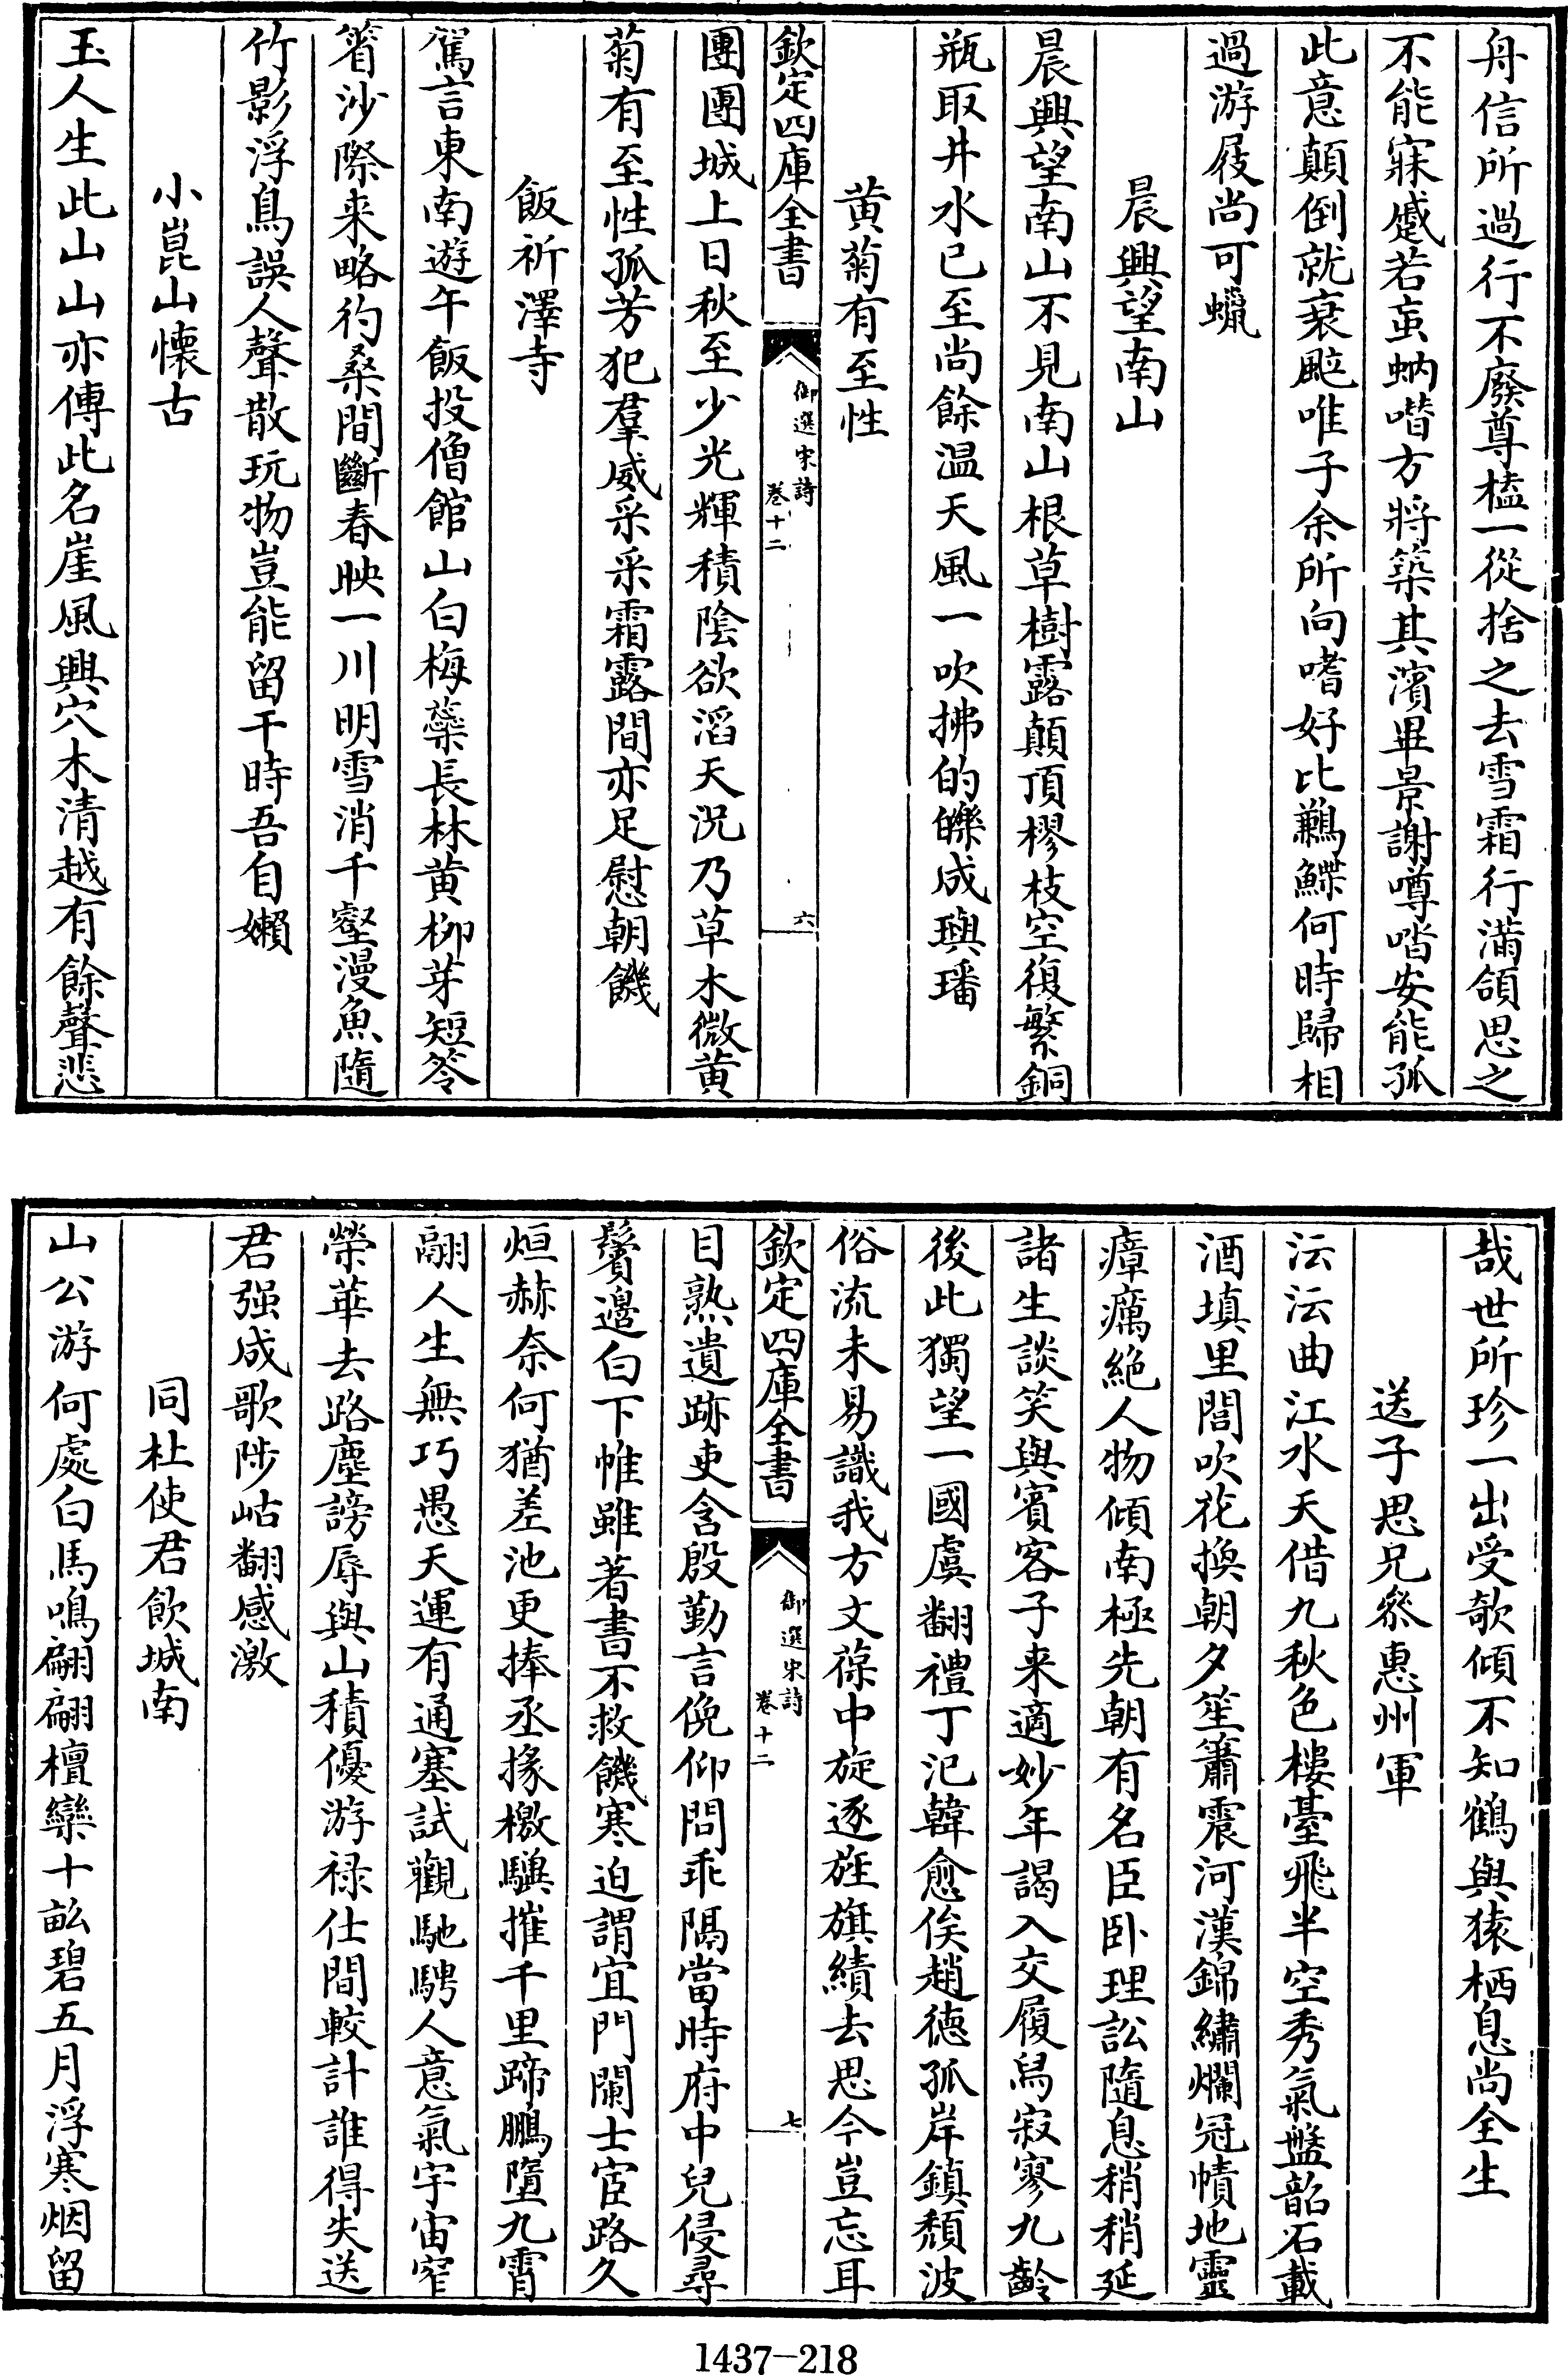 舟信所過行不廢尊榼一從捨之去雪霜行滿頷思之
不能寐蹙若䖟蚋噆方將築其濱畢景謝噂㗳安能孤
此意顛倒就衰颯唯子余所向嗜好比鶼鰈何時歸相
過游屐尚可蠟
晨興望南山
晨興望南山不見南山根草樹露顛頂樛枝空復繁銅
瓶取井水已至尚餘温天風一吹拂的皪成璵璠
黄菊有至性
欽定四庫全書
御選宋詩
卷十二
六
團團城上日秋至少光輝積陰欲滔天況乃草木微黄
菊有至性孤芳犯羣威采采霜露間亦足慰朝饑
飯祈澤寺
駕言東南遊午飯投僧館山白梅蘂長林黄柳芽短笭
箵沙際来略彴桑間斷春映一川明雪消千壑漫魚隨
竹影浮鳥誤人聲散玩物豈能留干時吾自嬾
小崑山懷古
玉人生此山山亦傳此名崖風興穴木清越有餘聲悲
哉世所珍一出受欹傾不知鶴與猿栖息尚全生
送子思兄叅惠州軍
沄沄曲江水天借九秋色樓臺飛半空秀氣盤韶石載
酒填里閭吹花換朝夕笙簫震河漢錦繡爛冠幘地靈
瘴癘絶人物傾南極先朝有名臣卧理訟隨息稍稍延
諸生談笑與賓客子来適妙年謁入交履舄寂寥九齡
後此獨望一國虞翻禮丁氾韓愈俟趙徳孤岸鎮頽波
俗流未易識我方文葆中旋逐旌旗績去思今豈忘耳
欽定四庫全書
御選宋詩
卷十二
七
目熟遺跡吏含殷勤言俛仰問乖隔當時府中兒侵尋
鬢邊白下帷雖著書不救饑寒迫謂宜門闌士宦路久
烜赫奈何猶差池更捧丞掾檄驥摧千里蹄鵬墮九霄
翮人生無巧愚天運有通塞試觀馳騁人意氣宇宙窄
榮華去路塵謗辱與山積優游禄仕間較計誰得失送
君强成歌陟岵翻感激
同杜使君飲城南
山公游何處白馬鳴翩翩檀欒十畝碧五月浮寒烟留
1437-218